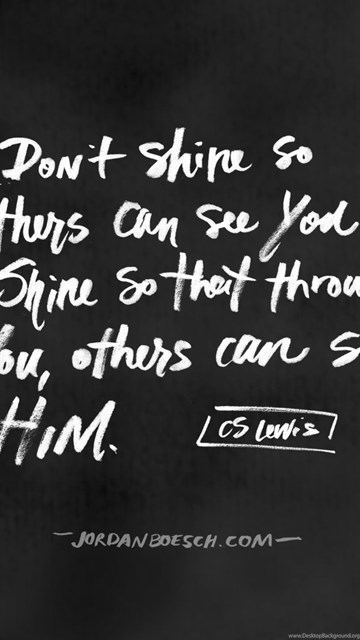 Don't shine so
thers can see you
Shine so that throu
ou, others can s
HIM.
CS Lewis
-JORDANBOESCH.COM-
www.DesktopBackground.org